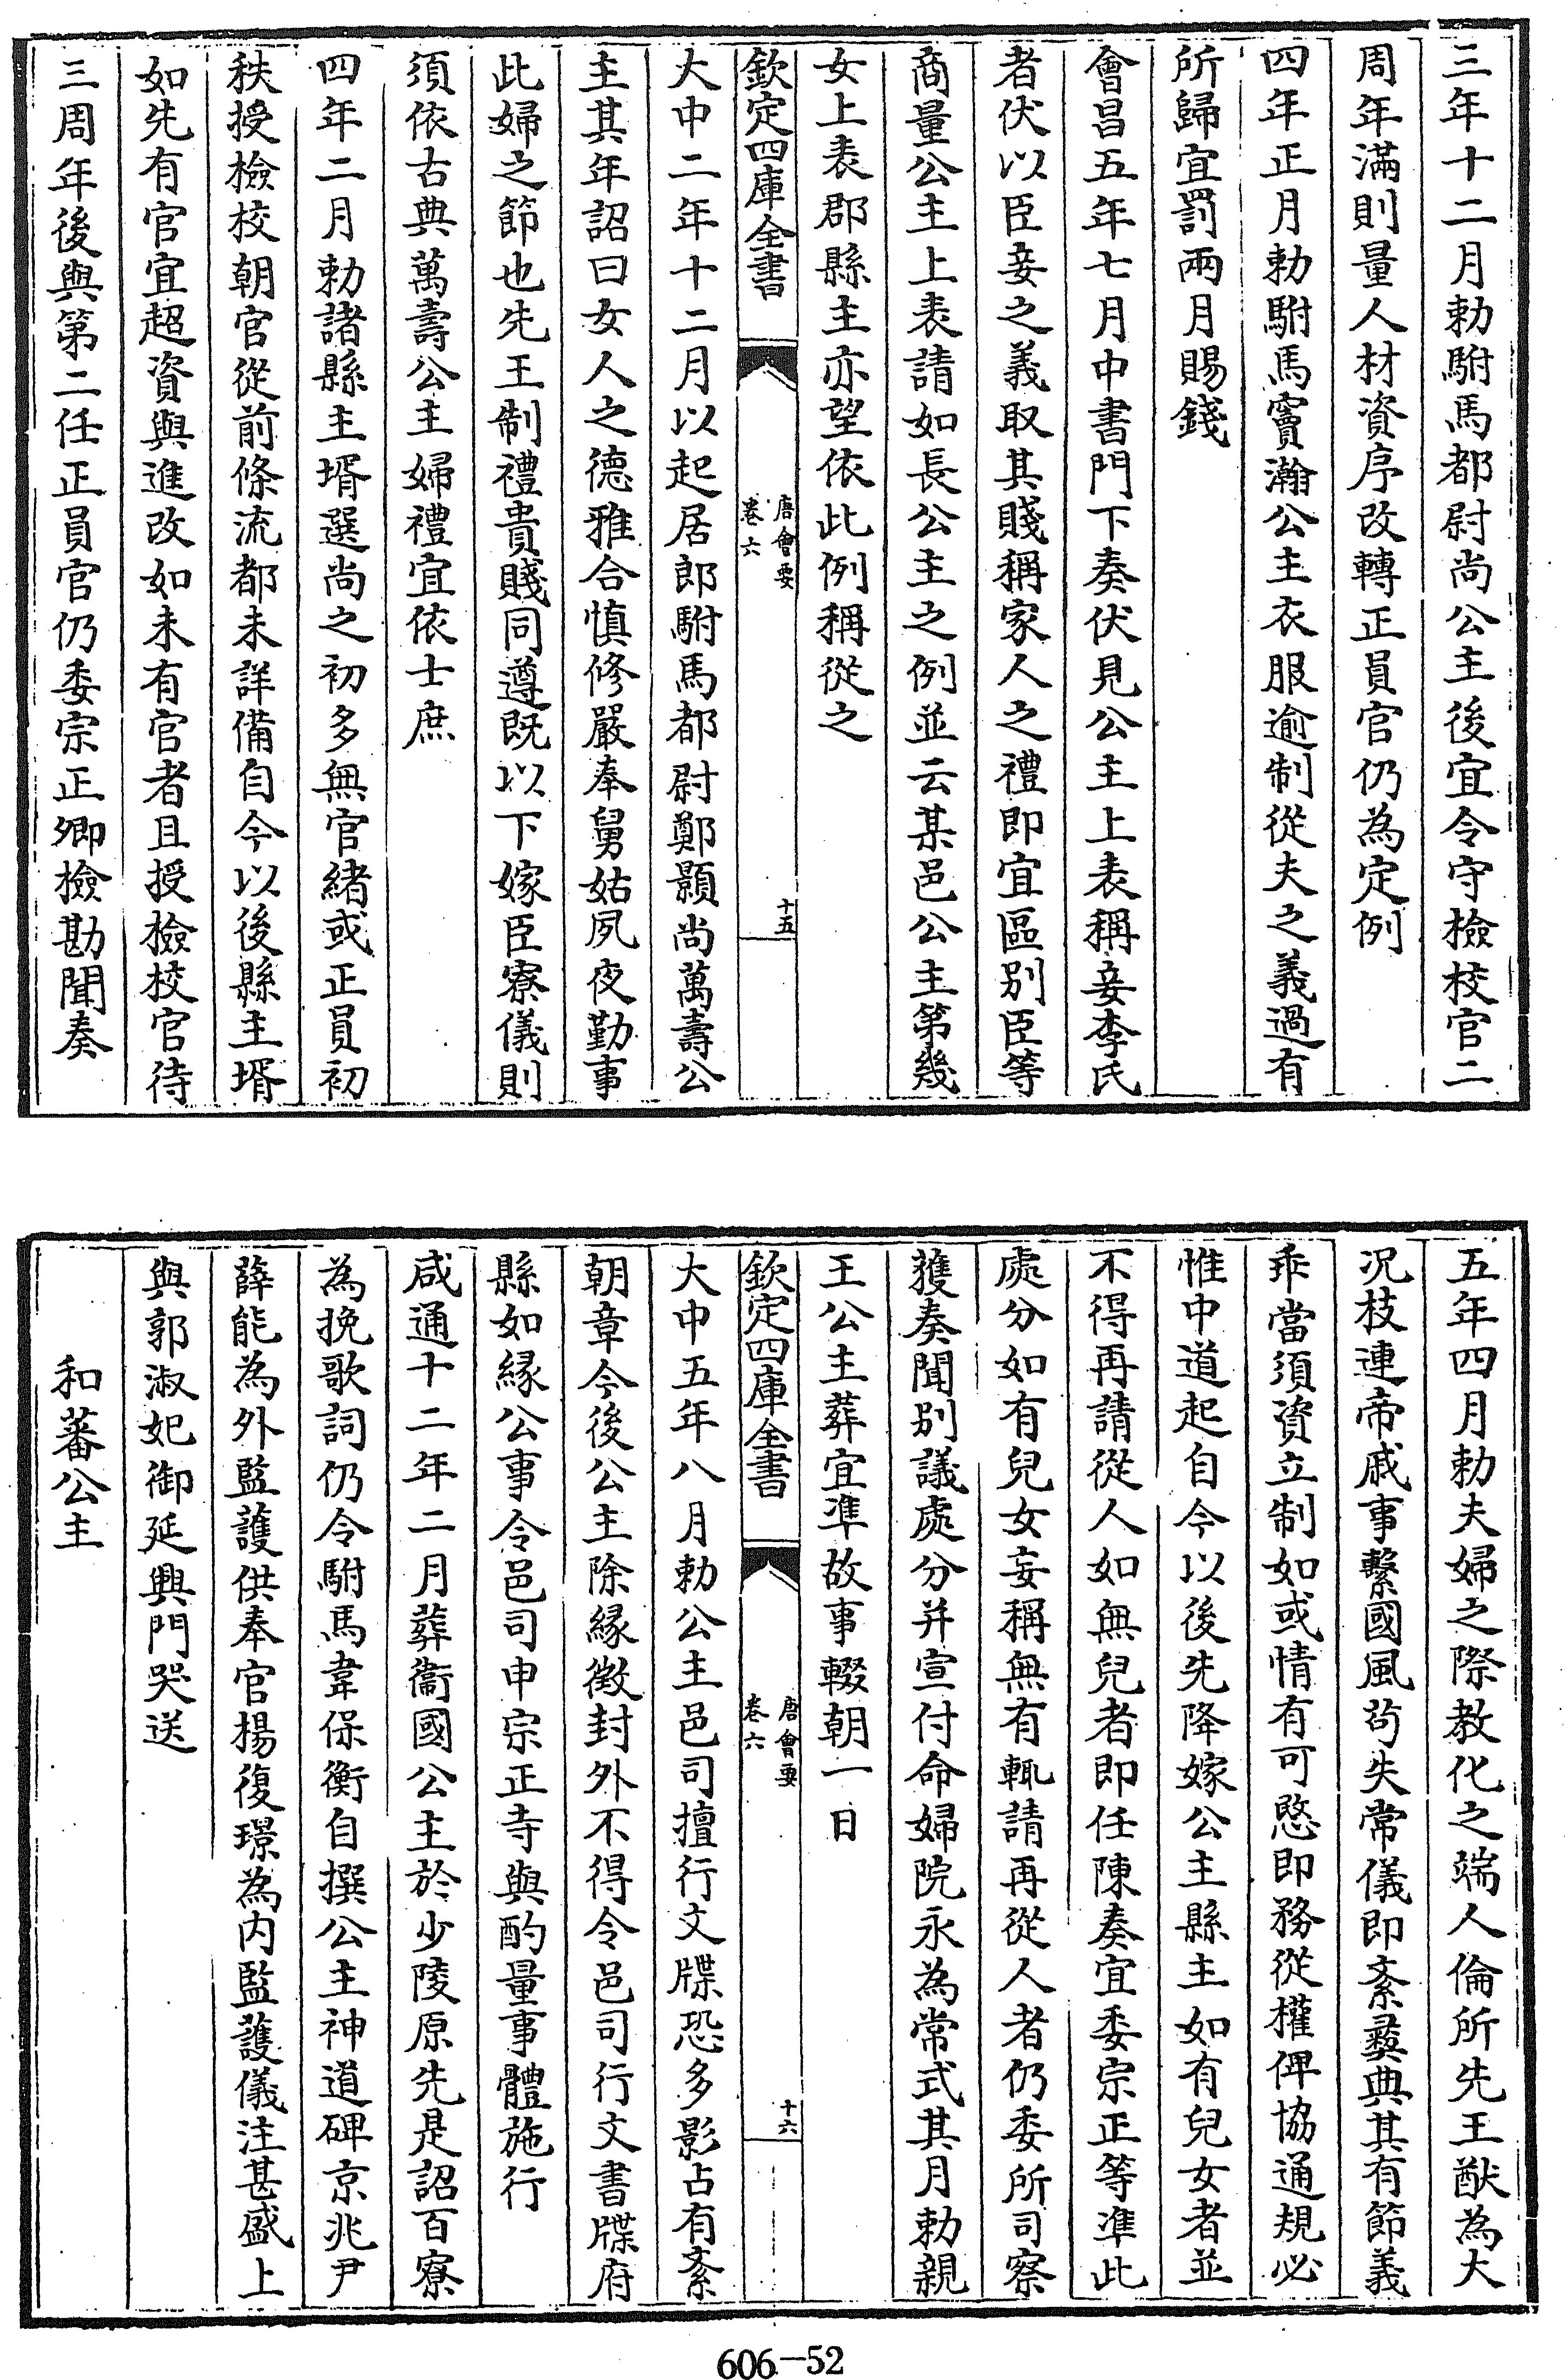 三年十二月勅駙馬都尉尚公主後宜令守檢校官二
周年滿則量人材資序改轉正員官仍為定例
四年正月勅駙馬竇瀚公主衣服逾制從夫之義過有
所歸宜罰兩月賜錢
會昌五年七月中書門下奏伏見公主上表稱妾李氏
者伏以臣妾之義取其賤稱家人之禮即宜區別臣等
商量公主上表請如長公主之例並云某邑公主第幾
女上表郡縣主亦望依此例稱從之
欽定四庫全書
唐會要
卷六
十五
大中二年十二月以起居郎駙馬都尉鄭顥尚萬壽公
主其年詔曰女人之德雅合慎修嚴奉舅姑夙夜勤事
此婦之節也先王制禮貴賤同遵既以下嫁臣寮儀則
須依古典萬壽公主婦禮宜依士庶
四年二月勅諸縣主壻選尚之初多無官緒或正員初
秩授檢校朝官從前條流都未詳備自今以後縣主壻
如先有官宜超資與進改如未有官者且授檢校官待
三周年後與第二任正員官仍委宗正卿檢勘聞奏
五年四月勅夫婦之際教化之端人倫所先王猷為大
況枝連帝戚事繫國風茍失常儀即紊彞典其有節義
乖當須資立制如或情有可愍即務從權俾協通規必
惟中道起自今以後先降嫁公主縣主如有兒女者並
不得再請從人如無兒者即任陳奏宜委宗正等準此
處分如有兒女妄稱無有輒請再從人者仍委所司察
獲奏聞別議處分并宣付命婦院永為常式其月勅親
王公主葬宜準故事輟朝一日
欽定四庫全書
唐會要
卷六
十六
大中五年八月勅公主邑司擅行文牒恐多影占有紊
朝章今後公主除緣徵封外不得令邑司行文書牒府
縣如緣公事令邑司申宗正寺與酌量事體施行
咸通十二年二月葬衞國公主於少陵原先是詔百寮
為挽歌詞仍令駙馬韋保衡自撰公主神道碑京兆尹
薛能為外監護供奉官楊復璟為內監護儀注甚盛上
與郭淑妃御延興門哭送
和蕃公主
606-52